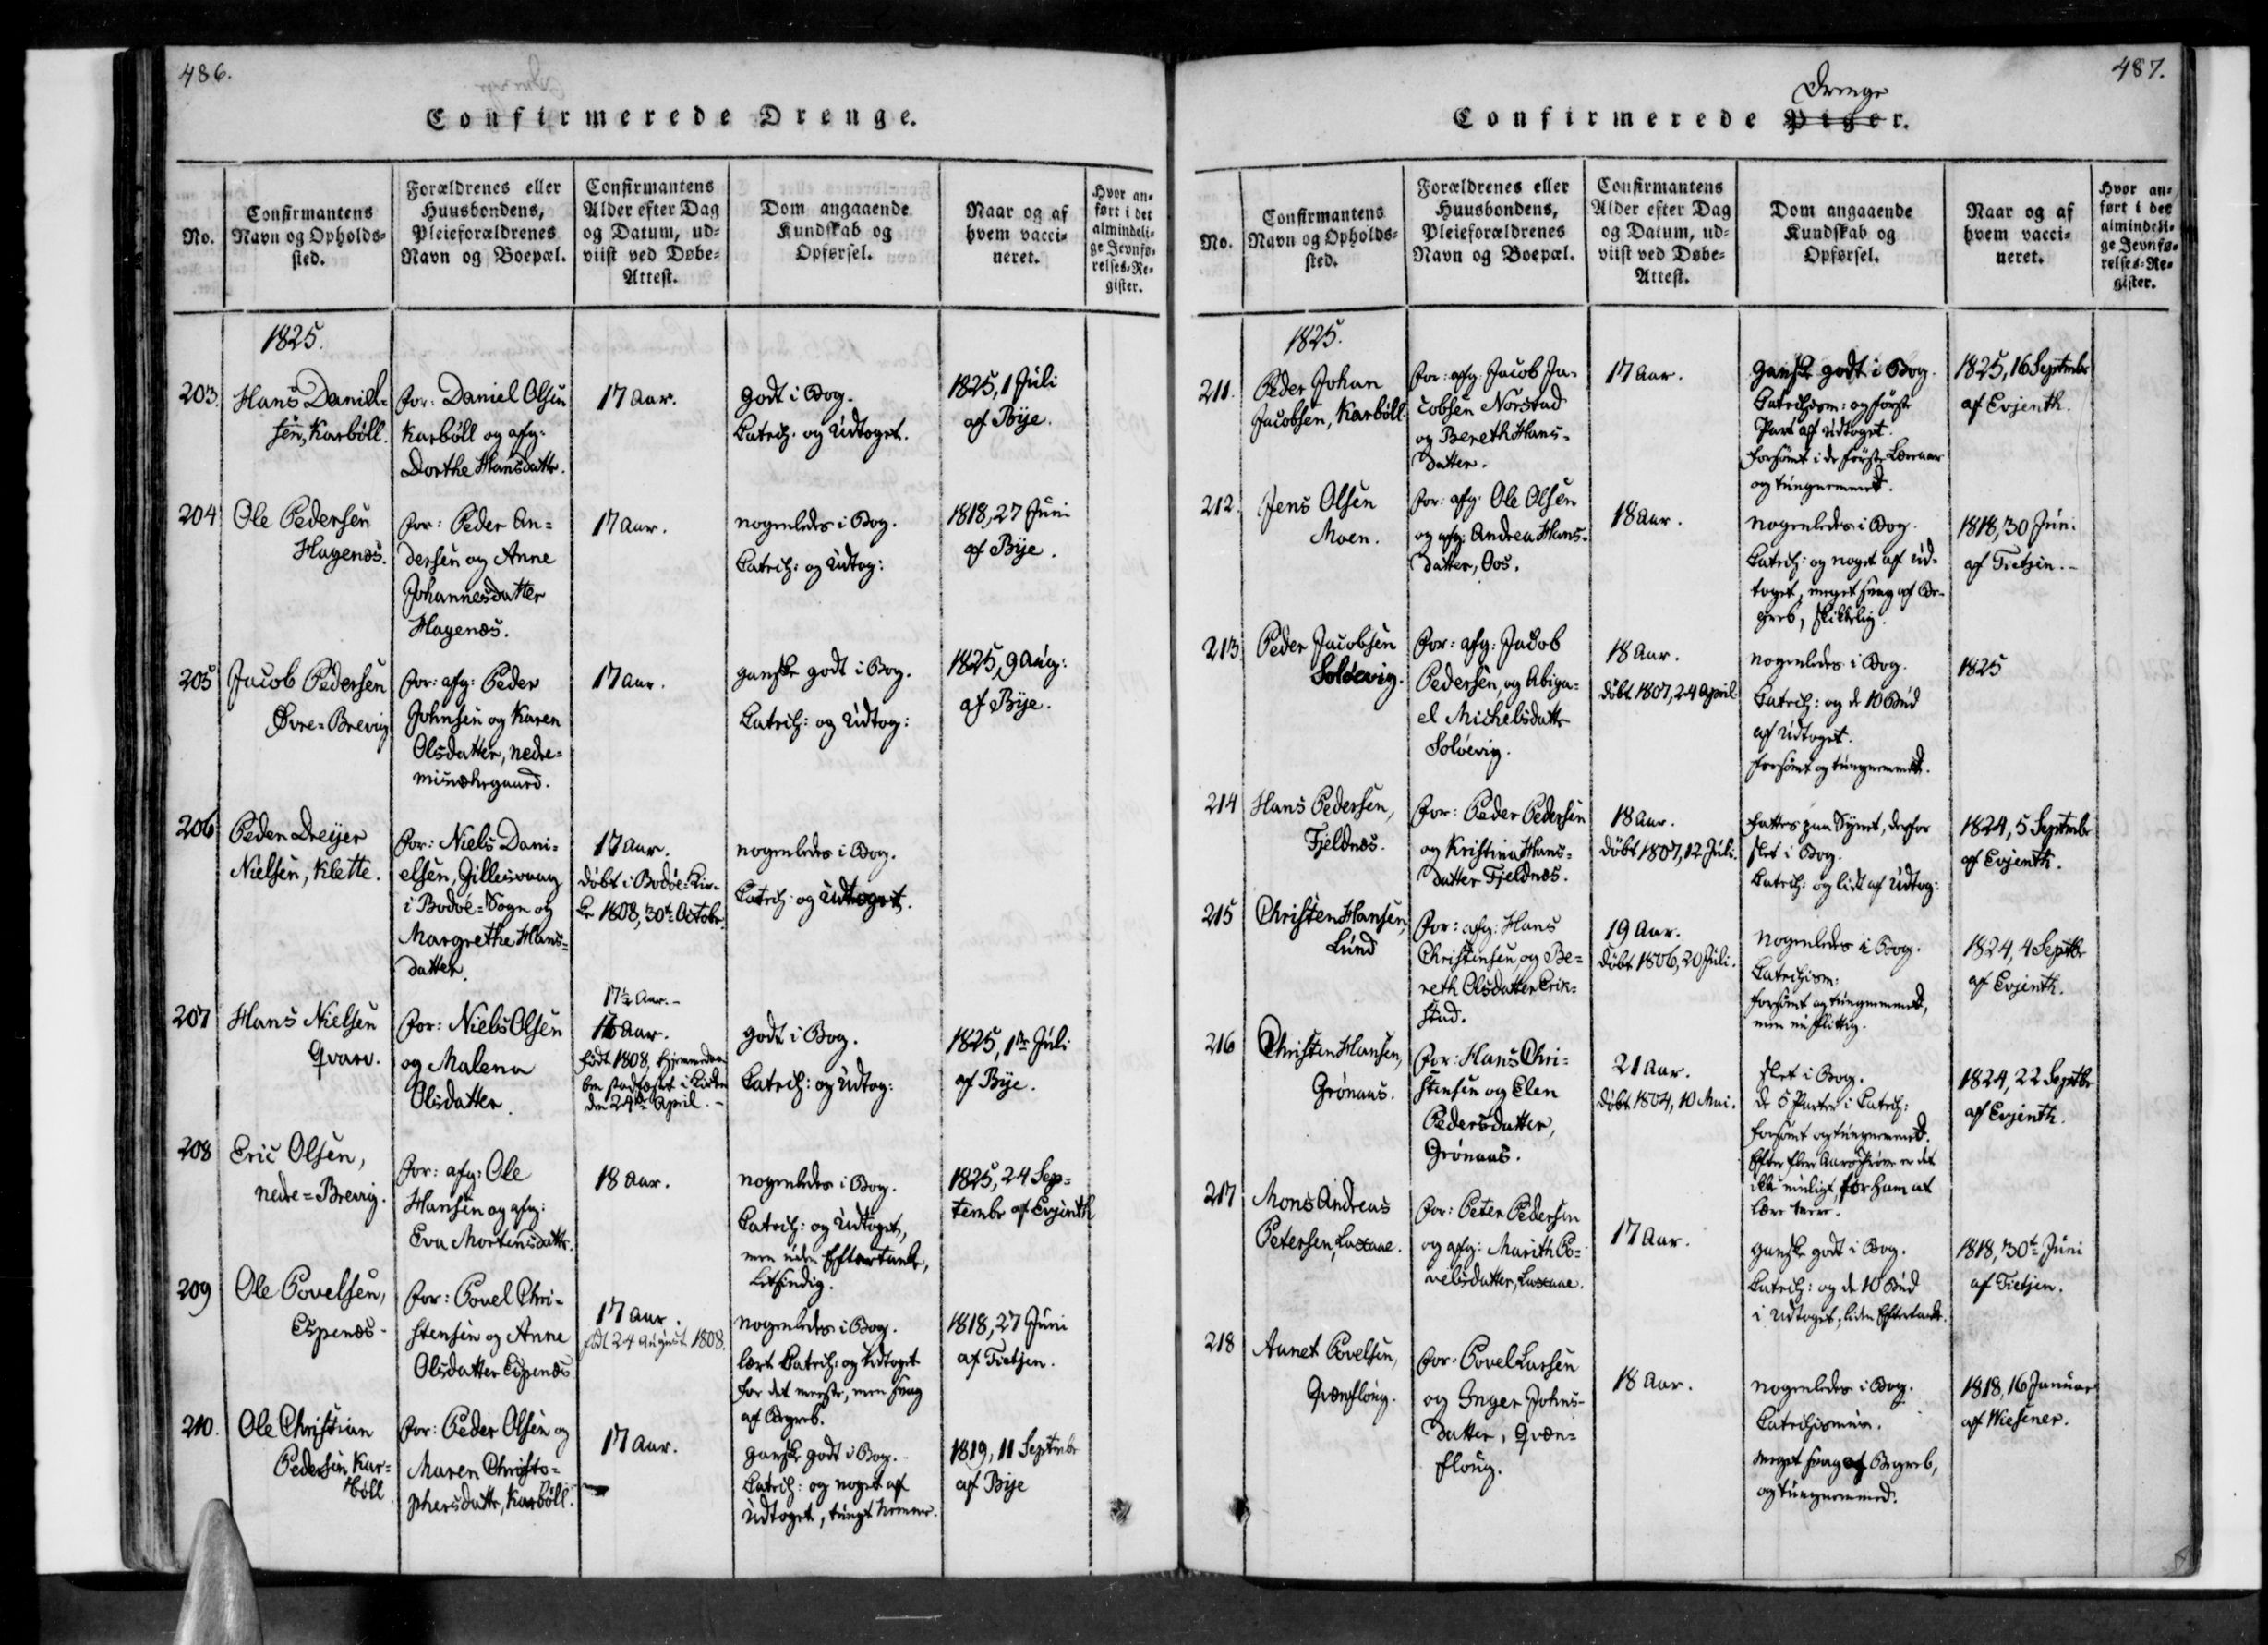 486.
Confirmerede Drenge.
No.
Confirmantens
Navn og Opholds-
sted.
Forældrenes eller
Huusbondens,
Pleieforældrenes
Navn og Boepæl.
Confirmantens
Alder efter Dag
og Datum, ud-
viist ved Døbe-
Attest.
Dom angaaende
Kundskab og
Opførsel.
Naar og af
hvem vacci-
neret.
Hvor an-
ført i det
almindeli-
ge Jevnfø-
relses-Re-
gister.
1825.
203.
Hans Daniel-
sen, Karböll.
For: Daniel Olsen
Karböll og afg:
Dorthe Hansdattr.
17 Aar.
godt i Bog.
Catech. og Udtoget.
1825, 1 Juli
af Bye.
204
Ole Pedersen
Hagenæs.
For: Peder An-
dersen og Anne
Johannesdatter
Hagenæs.
17 Aar.
nogenledes i Bog.
Catech: og Udtog:
1818, 27 Juni
af Bye.
205
Jacob Pedersen
Øvre=Brevig
For: afg: Peder
Johnsen og Karen
Olsdatter, nedre=
misværgaard.
17 Aar.
ganske godt i Bog.
Catech: og Udtog:
1825, 9 Aug:
af Bye.
206
Peder Dreyer
Nielsen, Klette.
For: Niels Dani-
elsen, Gillesvaag
i Bodöe=Sogn og
Margrethe Hans-
datter.
17 Aar.
döbt i Bodöe=Kir-
ke 1808, 30te Octobr.
nogenledes i Bog.
Catech: og Udtoget.
207
Hans Nielsen
Qvarv.
For: Niels Olsen
og Malena
Olsdatter.
17½ Aar.-
16 Aar.
födt 1808, hjemmedöbt
stadfæstet i Kirken
den 24de April.-
godt i Bog.
Catech: og Udtog:
1825, 1ste Juli
af Bye.
208
Eric Olsen,
nedre=Brevig.
For: afg: Ole
Hansen og afg:
Eva Mortensdattr.
18 Aar.
nogenledes i Bog.
Catech: og Udtoget,
men uden Eftertanke,
letsindig.
1825, 24 Sep-
tembr af Evjenth
209
Ole Povelsen,
Espenæs-
For: Povel Chri-
stensen og Anne
Olsdatter Espenæs
17 Aar.
födt 24 August 1808.
nogenledes i Bog.
lært Catech: og Udtoget
for det meeste, men svag
af Begreb.
1818, 27 Juni
af Tietjen.
210.
Ole Christian
Pedersen, Kar-
böll
For: Peder Olsen og
Maren Christo-
phersdattr, Karböll.
17 Aar.
ganske godt i Bog.-
Catech: og noget af
Udtoget, tungt Nemme.
1819, 11 Septembr
af Bye
487.
Drenge
Confirmerede Piger.
No.
Confirmantens
Navn og Opholds-
sted.
Forældrenes eller
Huusbondens,
Pleieforældrenes
Navn og Boepæl.
Confirmantens
Alder efter Dag
og Datum, ud-
viist ved Døbe-
Attest.
Dom angaaende
Kundskab og
Opførsel.
Naar og af
hvem vacci-
neret.
Hvor an-
ført i det
almindeli-
ge Jevnfø-
relses-Re-
gister.
1825.
211.
Peder Johan
Jacobsen, Karböll.
For: afg: Jacob Ja-
cobsen Norstad
og Bereth Hans-
datter.
17 Aar.
ganske godt i Bog.
Catechism: og første
Part af Udtoget.
forsömt i de første Læreaar
og tungnemmed.
1825, 16 Septembr
af Evjenth.
212.
Jens Olsen
Moen.
For: afg: Ole Olsen
og afg: Andrea Hans-
datter, Oos.
18 Aar.
nogenledes i Bog.
Catech: og noget af Ud-
toget, meget svag af Be-
greb, skikkelig.
1818, 30 Juni
af Tietjen.-
213
Peder Jacobsen
Solöevig.
For: afg: Jacob
Pedersen, og Abiga-
el Michelsdattr
Solöevig.
18 Aar.
döbt 1807, 24 April
nogenledes i Bog.
Catech: og de 10 Bud
af Udtoget.
forsömt og tungnemmed.
1825
214
Hans Pedersen,
Fjeldnæs.
For: Peder Pedersen
og Kristina Hans-
datter Fjeldnæs.
18 Aar.
döbt 1807, 12 Juli.
fattes paa Synet, derfor
slet i Bog.
Catech: og lidt af Udtog:
1824, 5 Septembr
af Evjenth.
215
Christen Hansen,
Lund
For: afg: Hans
Christensen og Be-
reth Olsdatter Erik-
stad.
19 Aar.
döbt 1806, 20 Juli.
nogenledes i Bog.
Catechism:
forsömt og tungnemmed,
men nu flittig.
1824, 4 Septbr
af Evjenth.
216
Christen Hansen,
Grönaas.
For: Hans Chri-
stensen og Elen
Pedersdatter,
Grönaas.
21 Aar.
döbt 1804, 10 Mai.
slet i Bog.
de 5 Parter i Catech:
forsömt og tungnemmed.
Efter flere Aars Prøve er det
ikke muligt for ham at
lære mere.
1824, 22 Septbr
af Evjenth.
217
Mons Andreas
Petersen, Laxaae.
For: Peter Pedersen
og afg: Marith Po-
velsdatter, Laxaae.
17 Aar.
ganske godt i Bog.
Catech: og de 10 Bud
i Udtoget, liden Eftertanke.
1818, 30te Juni
af Tietjen.
218
Aunet Povelsen,
Qvænfloug.
For: Povel Larsen
og Inger Johns-
datter, Qvæn-
floug.
18 Aar.
nogenledes i Bog.
Catechismus.
meget svag af Begreb,
og tungnemmed.
1818, 16 Januar
af Wiesener.